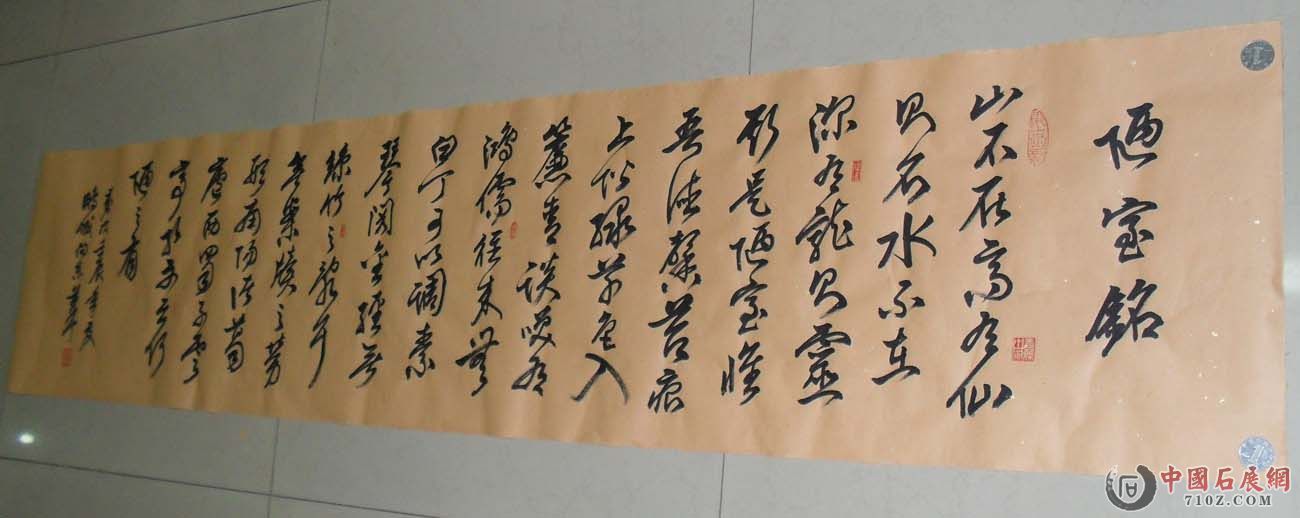 陋室銘
山不在高有仙
则名水不在
深有龍则靈
斯是陋室惟
吾德馨苔痕
上阶绿草色入
簾青談笑有
鴻儒往来無
白丁可以調素
琴閲金經無
絲竹之乱耳
無案牘之劳
形南阳诸葛
廬西蜀子雲
亭孔子云何
陋之有
壬辰年夏
中國石展網
710Z.COM